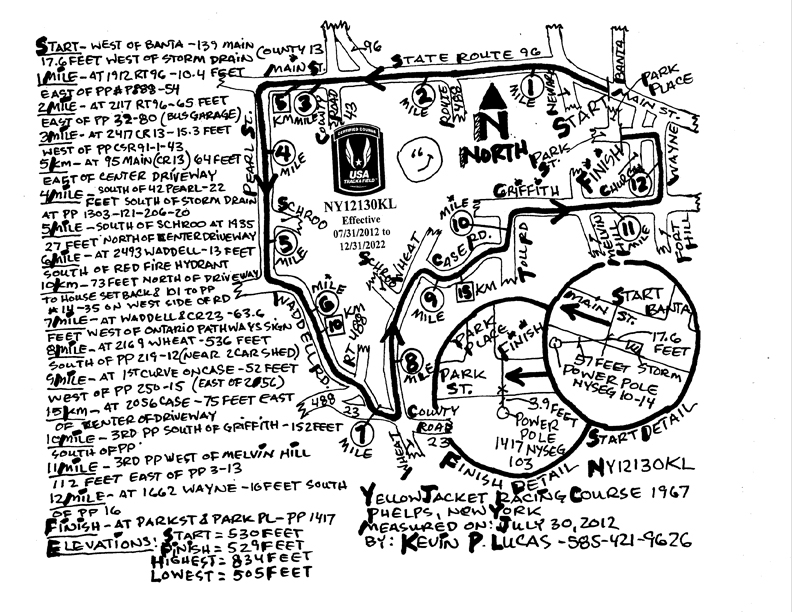 START - WEST OF BANTA - 139 MAIN
17.6 FEET WEST OF STORM DRAIN
1 MILE - AT 1912 RT96 - 10.4 FEET
EAST OF PP# F888-54
2 MILE - AT 2117 RT96 - 65 FEET
EAST OF PP 32-80 (BUS GARAGE)
3 MILE - AT 2417 CR13 - 15.3 FEET
WEST OF PP CSR91-1-43
5 KM - AT 95 MAIN (CR13) 64 FEET
EAST OF CENTER DRIVEWAY
4 MILE - SOUTH OF 42 PEARL - 22
FEET SOUTH OF STORM DRAIN
AT PP 1303-121-206-20
5 MILE - SOUTH OF SCHROO AT 1435
27 FEET NORTH OF CENTER DRIVEWAY
6 MILE - AT 2493 WADDELL - 13 FEET
SOUTH OF RED FIRE HYDRANT
10 KM - 73 FEET NORTH OF DRIVEWAY
TO HOUSE SET BACK & 101 TO PP
#14-35 ON WEST SIDE OF RD
7 MILE - AT WADDELL & CR23 - 63.6
FEET WEST OF ONTARIO PATHWAYS SIGN
8 MILE - AT 2169 WHEAT - 536 FEET
SOUTH OF PP 219-12 (NEAR 2 CAR SHED)
9 MILE - AT 1ST CURVE ON CASE - 52 FEET
WEST OF PP 250-15 (EAST OF 2056)
15 KM - AT 2056 CASE - 75 FEET EAST
OF CENTER OF DRIVEWAY
10 MILE - 3RD PP SOUTH OF GRIFFITH - 152 FEET
SOUTH OF PP
11 MILE - 3RD PP WEST OF MELVIN HILL
112 FEET EAST OF PP 3-13
12 MILE - AT 1662 WAYNE - 16 FEET SOUTH
OF PP 16
FINISH - AT PARK ST & PARK PL - PP 1417
ELEVATIONS:
START = 530 FEET
FINISH = 529 FEET
HIGHEST = 834 FEET
LOWEST = 505 FEET
COUNTY 13
MAIN ST.
96
STATE ROUTE 96
BANTA
PARK PLACE
MAIN ST.
NEWARK
START
1
MILE
2
MILE
ROUTE 488
5 KM
3 MILE
COUNTY ROAD 43
PEARL ST.
4
MILE
CERTIFIED COURSE
USA
TRACK & FIELD
NY12130KL
Effective
07/31/2012 to
12/31/2022
N
NORTH
PARK ST.
FINISH
CHURCH
12
WAYNE
GRIFFITH
SCHROO
5
MILE
SCHROO
WHEAT
CASE RD.
10
MILE
TOLL RD
MELVIN HILL
11
MILE
FORT HILL
WADDELL RD.
MILE
6
10
KM
RT 488
9
MILE
15 KM
8
MILE
488
23
7
MILE
WHEAT
COUNTY
ROAD
23
PARK PLACE
FINISH
PARK ST.
3.9 FEET
POWER
POLE
1417 NYSEG
103
FINISH DETAIL
START
MAIN ST.
BANTA
17.6
FEET
57 FEET
STORM
POWER POLE
NYSEG 10-14
START DETAIL
NY12130KL
YELLOWJACKET RACING COURSE 1967
PHELPS, NEW YORK
MEASURED ON: JULY 30, 2012
BY: KEVIN P. LUCAS - 585-421-9626